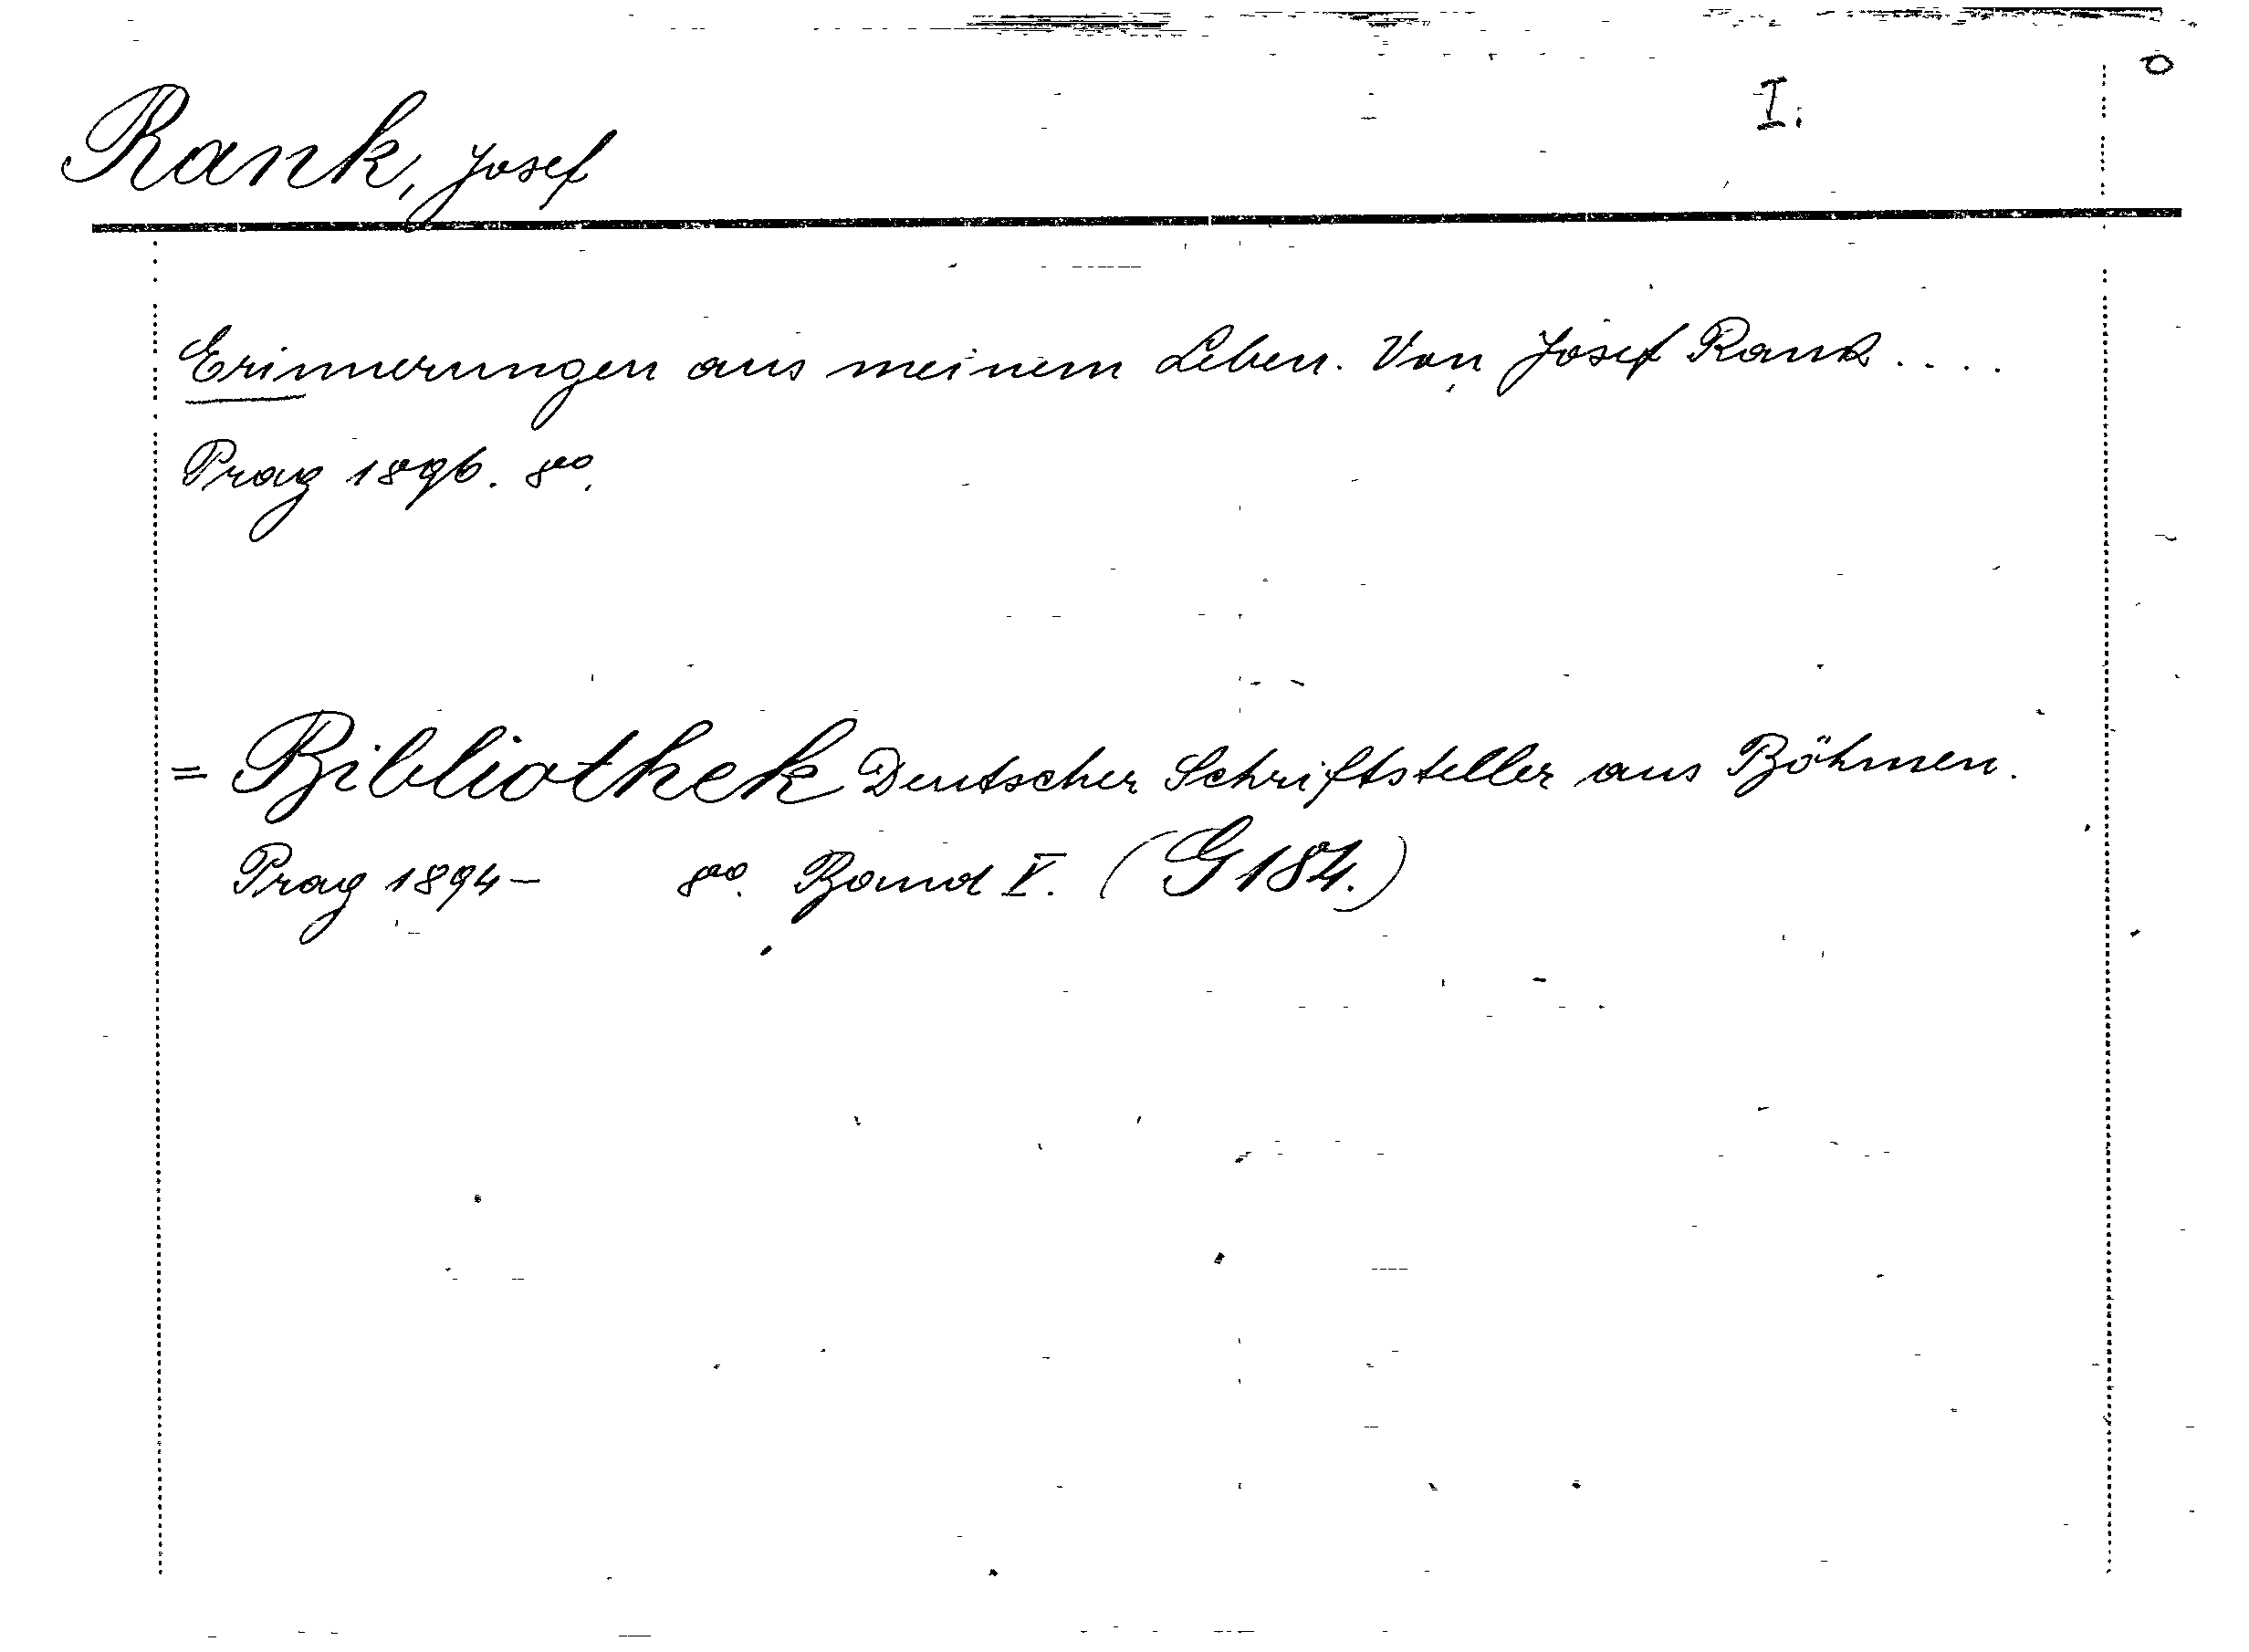 I.
Rank, Josef
Erinnerungen aus meinem Leben. Von Josef Rank....
Prag 1896. 8vo.
= Bibliothek Deutscher Schriftsteller aus Böhmen.
Prag 1894- 8vo. Band V. (G 184.)